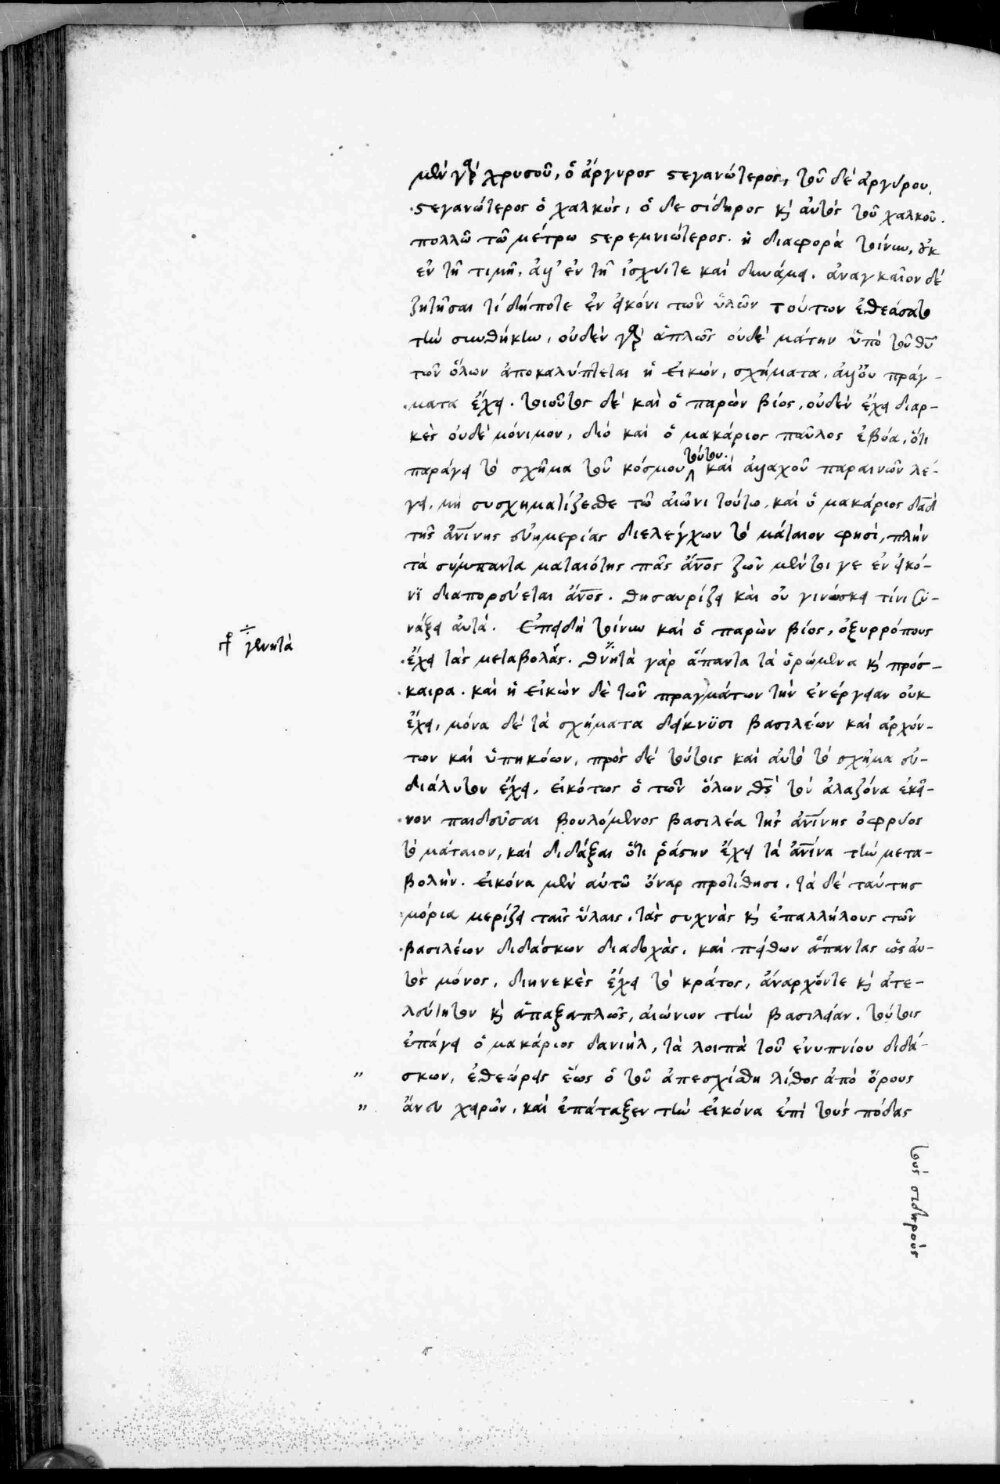 μὲν γὰρ χρυσοῦ, ὁ ἄργυρος στεγανώτερος, τοῦ δὲ ἀργύρου
στεγανώτερος ὁ χαλκὸς, ὁ δὲ σίδηρος κ̀ αὐτὸς τοῦ χαλκοῦ.
πολλῶ τῶ μέτρω στερεμνιώτερος. ἡ διαφορὰ τοίνυν, οὐκ
ἐν τῆ τιμῆ, ἀλλ' ἐν τῆ ἰσχύϊ τε καὶ δυνάμει. ἀναγκαῖον δὲ
ζητῆσαι τί δήποτε ἐν εἰκόνι τῶν ὑλῶν τούτων ἐθεάσατο
τὴν συνθήκην, οὐδὲν γὰρ ἁπλῶς οὐδὲ μάτην ὑπὸ τοῦ θῦ
τῶν ὅλων ἀποκαλύπτεται ἡ εἰκὼν, σχήματα, ἀλλ' οὐ πράγ-
ματα ἔχει. τοιοῦτος δὲ καὶ ὁ παρὼν βίος, οὐδὲν ἔχει διαρ-
κὲς οὐδὲ μόνιμον, διὸ καὶ ὁ μακάριος παῦλος ἐβόα, ὅτι
παράγει τὸ σχῆμα τοῦ κόσμου τούτου. καὶ ἀλλαχοῦ παραινῶν λέ-
γει, μὴ συσχηματίζεσθε τῶ αἰῶνι τούτω, καὶ ὁ μακάριος δᾱδ
τῆς ἀνίνης εὐημερίας διελέγχων τὸ μάταιον φησὶ, πλὴν
τὰ σύμπαντα ματαιότης πᾶς ἄνος ζῶν μέντοι γε ἐν εἰκό-
νι διαπορεύεται ἄνος. θησαυρίζει καὶ οὐ γινώσκει τίνι συ-
νάξει αὐτά. ἐπειδὴ τοίνυν καὶ ὁ παρὼν βίος, ὀξυρρόπους
γρ γεννητὰ
ἔχει τὰς μεταβολὰς. θνητὰ γὰρ ἅπαντα τὰ ὁρώμενα κ̀ πρόσ-
καιρα. καὶ ἡ εἰκὼν δὲ τῶν πραγμάτων τὴν ἐνέργειαν οὐκ
ἔχει, μόνα δὲ τὰ σχήματα δείκνυσι βασιλέων καὶ ἀρχόν-
των καὶ ὑπηκόων, πρὸς δὲ τούτοις καὶ αὐτὸ τὸ σχῆμα εὐ-
διάλυτον ἔχει, εἰκότως ὁ τῶν ὅλων θς τὸν ἀλαζόνα ἐκεῖ-
νον παιδεῦσαι βουλόμενος βασιλέα τῆς ἀνίνης ὀφρύος
τὸ μάταιον, καὶ διδάξαι ὅτι ῥάστην ἔχει τὰ ἀνίνα τὴν μετα-
βολὴν. εἰκόνα μὲν αὐτῶ ὄναρ προτίθησι, τὰ δὲ ταύτης
μόρια μερίζει ταῖς ὕλαις, τὰς συχνὰς κ̀ ἐπαλλήλους τῶν
βασιλέων διδάσκων διαδοχὰς, καὶ πείθων ἅπαντας ὡς αὐ-
τὸς μόνος, διηνεκὲς ἔχει τὸ κράτος, ἄναρχόν τε κ̀ ἀτε-
λεύτητον κ̀ ἁπαξαπλῶς, αἰώνιον τὴν βασιλείαν. τούτοις
ἐπάγει ὁ μακάριος δανιὴλ, τὰ λοιπὰ τοῦ ἐνυπνίου διδά-
" σκων, ἐθεώρεις ἕως ὁ τοῦ ἀπεσχίσθη λίθος ἀπὸ ὄρους
" ἄνευ χειρῶν, καὶ ἐπάταξεν τὴν εἰκόνα ἐπὶ τοὺς πόδας
τοὺς σιδηροὺς